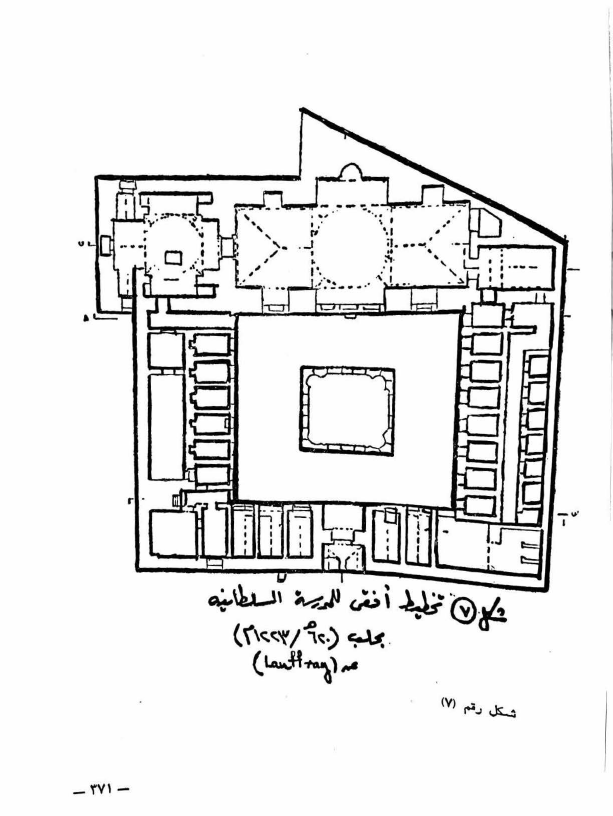 شكل (٧) تخطيط أفقى للمدرسة السلطانيه
بحلب (٦٢٠هـ/١٢٢٣م)
عن (Lauffray)
شكل رقم (٧)
— ٣٧١ —